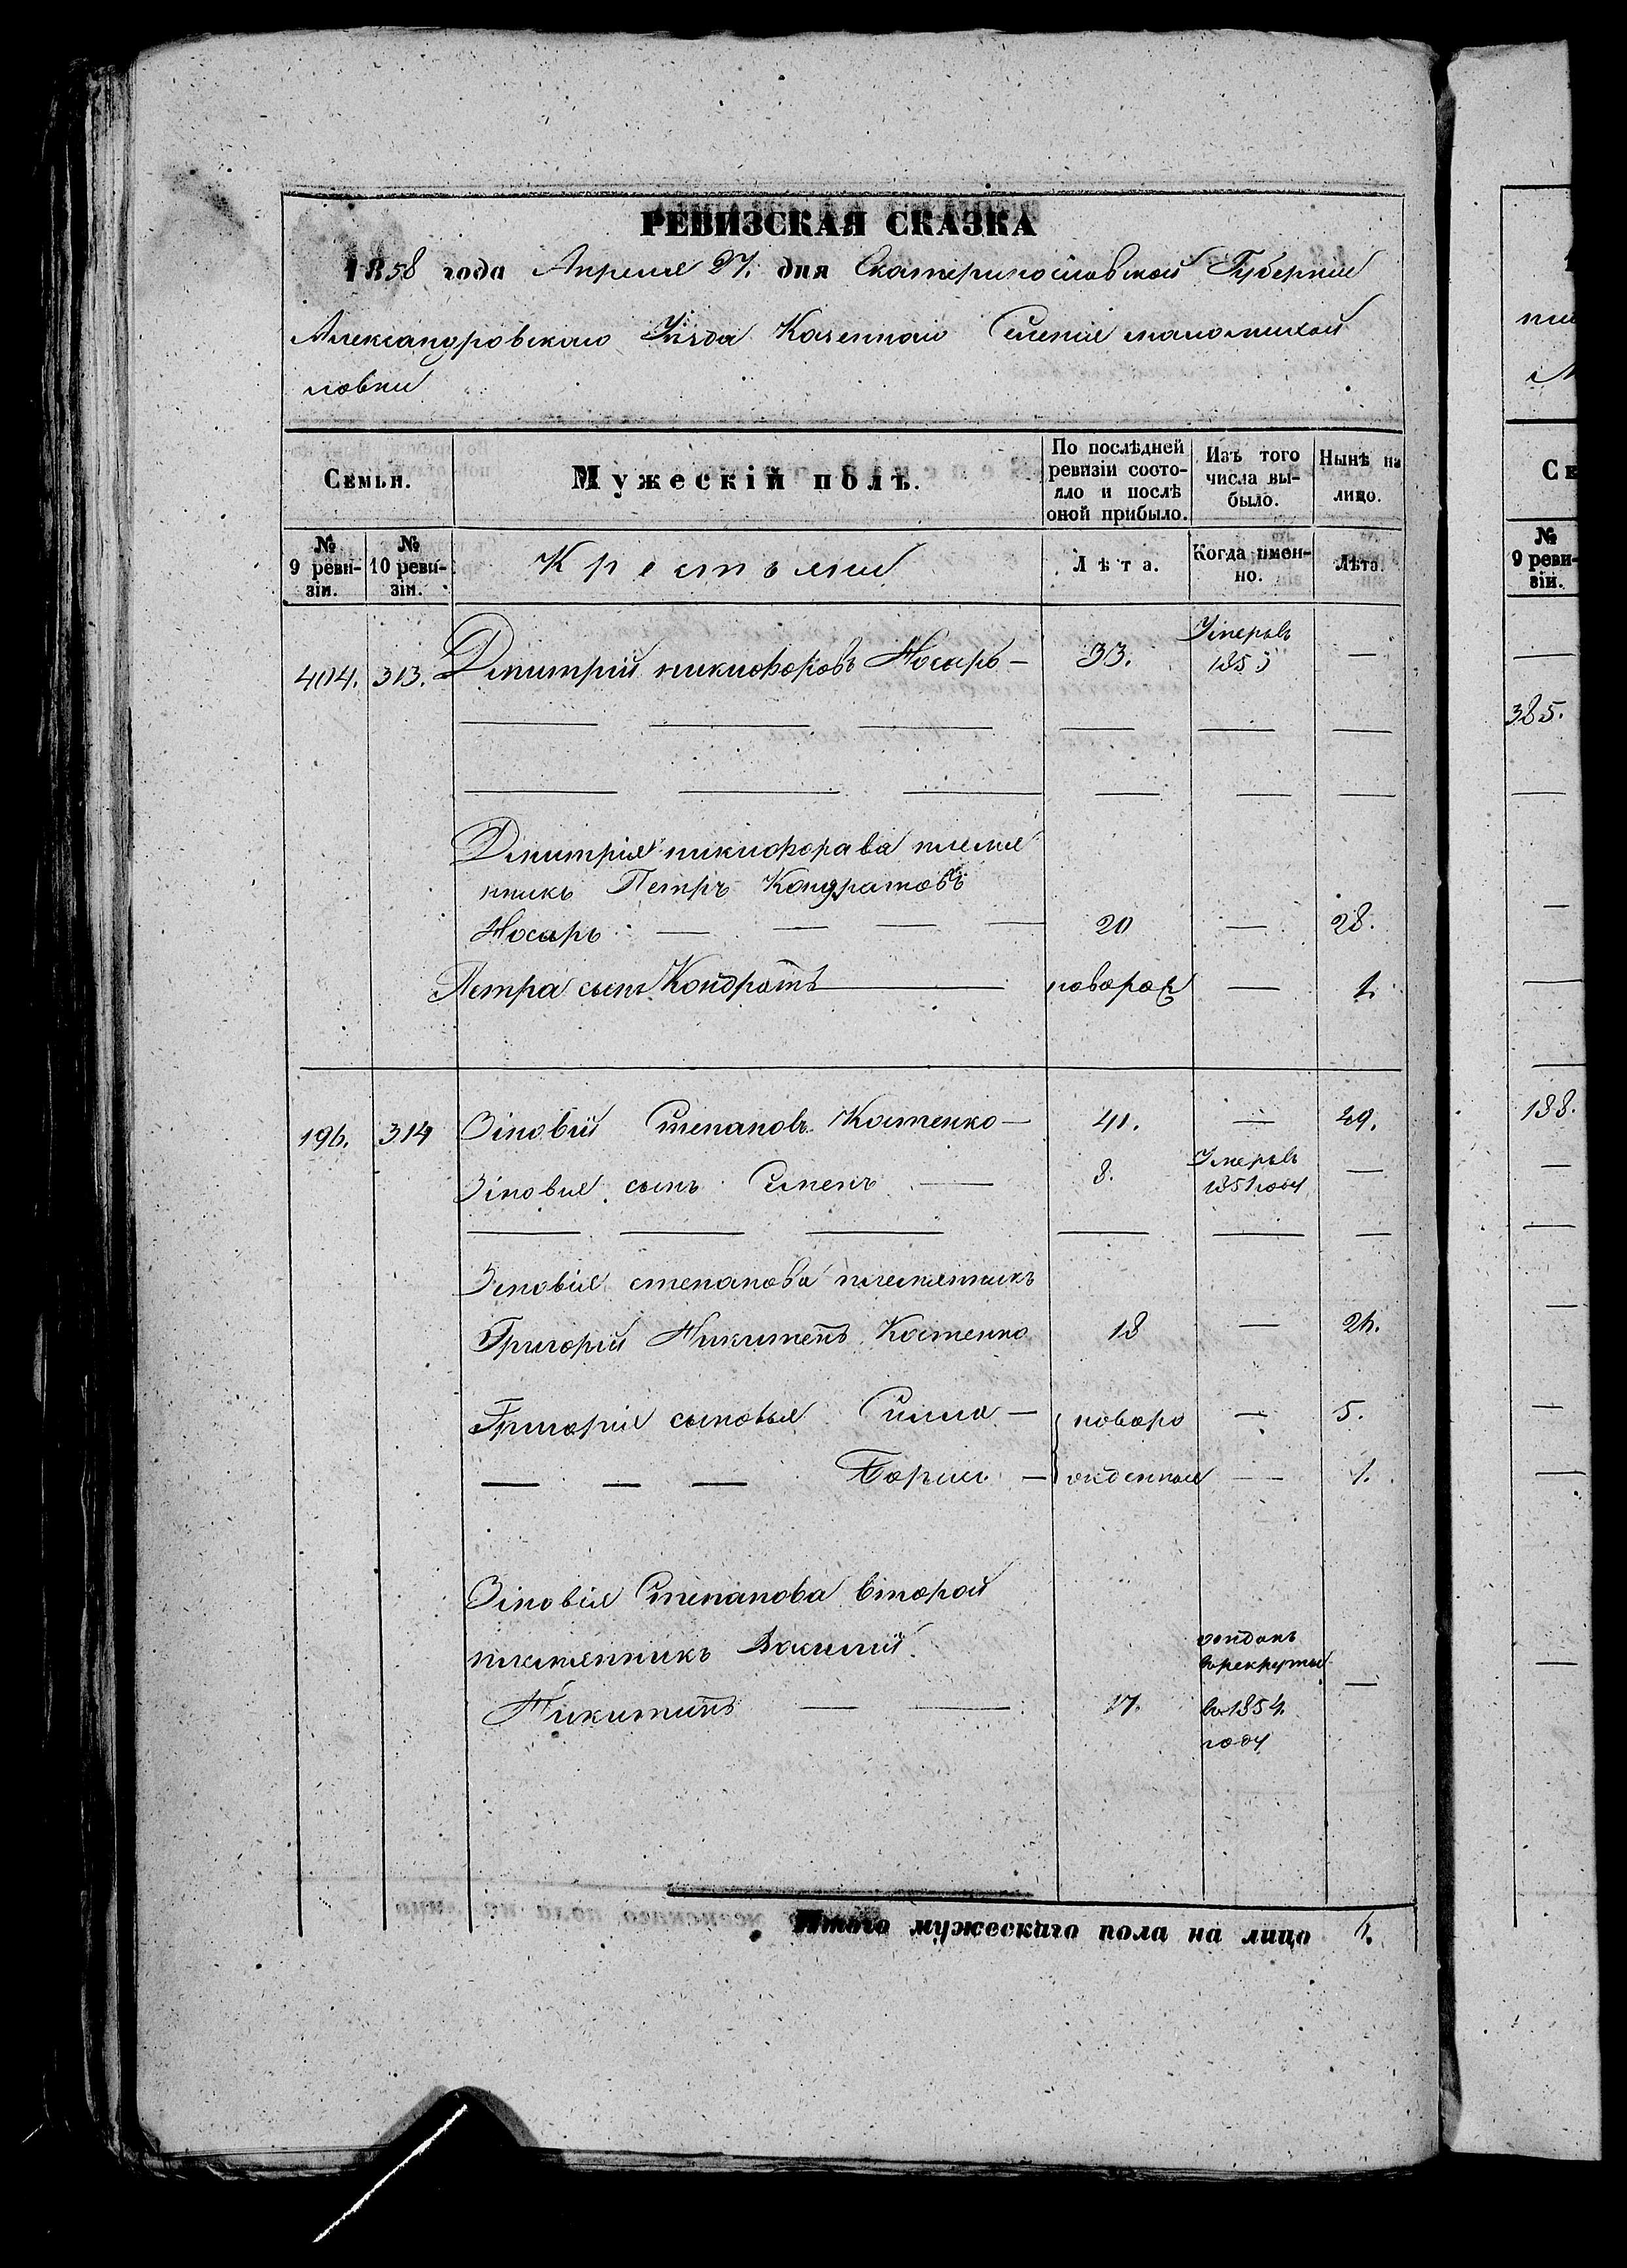 РЕВИЗСКАЯ СКАЗКА
1858 года Апреля 27. дня Екатеринославской Губернии
Александровскаго Уѣзда Казеннаго Селенія маломихай
ловки
Семьи.
Мужескій полъ.
По послѣдней ревизіи состо-
яло и послѣ
оной прибыло.
Изъ того
числа вы-
было.
Нынѣ на
лицо.
№
9 реви-
зіи.
№
10 реви-
зіи.
Крестьяни
Лѣта.
Когда имен-
но.
Лѣта.
404. 313. Дмитрій никифоровъ Носарь — 33. Умеръвъ —
185
Дмитрія никифорава племя
нникъ Петръ Кондратовъ
Носарь — — — — 20 — 28.
Петра сынъ Кондратъ новорож — 1.
196. 314 Зіновій Степановъ Костенко — 41. — 49.
Зіновия сынъ Семенъ — 8. Умеръвъ —
1851 году
Зиновія степанова племянникъ
Григорій Никитенъ Костенко 18 — 26.
Григорія сыновья Силла — новоро — 5.
— — — Борисъ — жденныя — 1.
Зіновія Степанова второй
племянникъ Василій
Никитинъ — — 17. отданъ
врекруты —
в 1854
году
Итого мужескаго пола на лицо 6.
№
9 реви-
зіи.
385.
188.